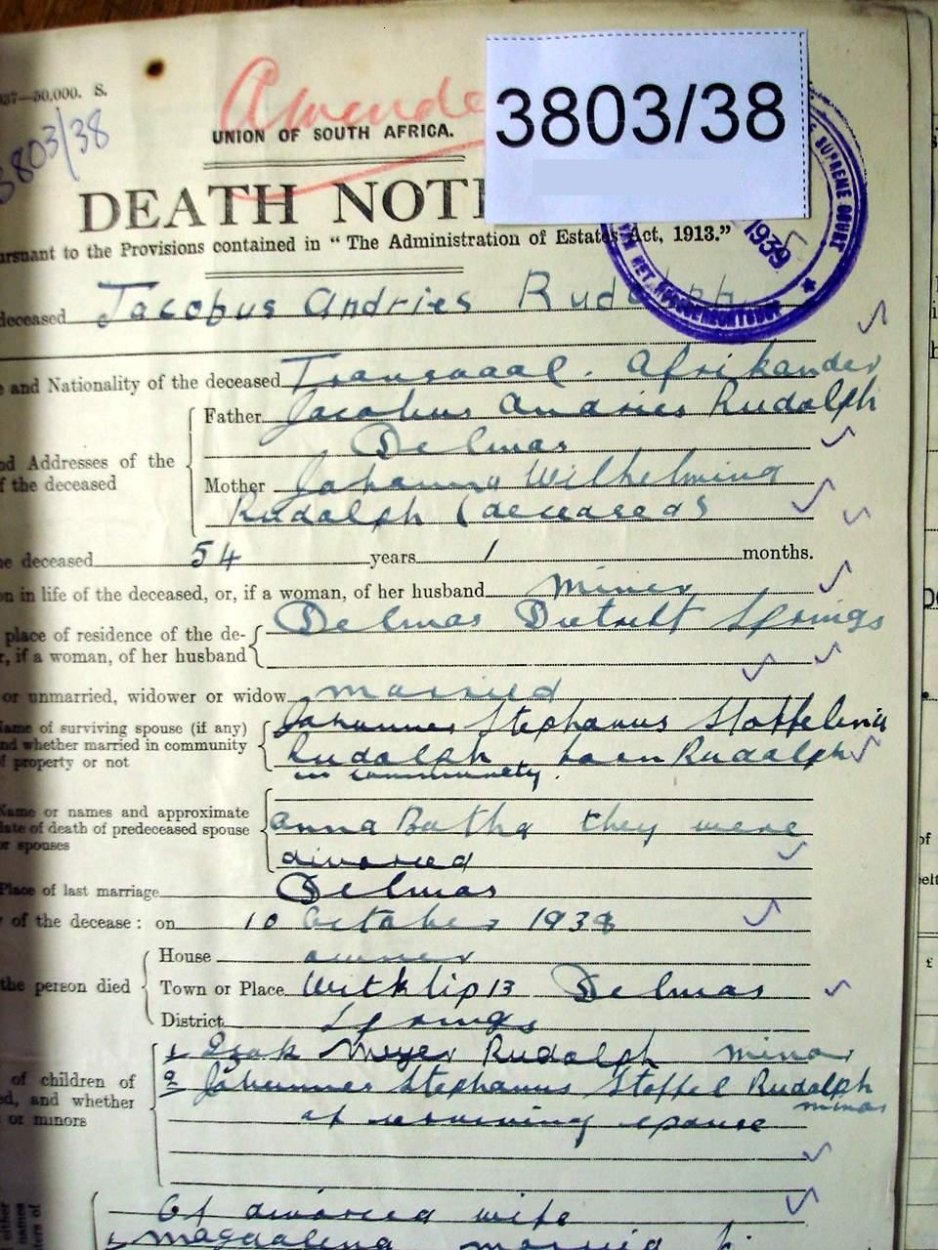 37—50,000. S.
3803/38
Amende
3803/38
UNION OF SOUTH AFRICA.
DEATH NOTI
SUPREME COURT
1939
ursuant to the Provisions contained in “The Administration of Estates Act, 1913.”
deceased Jacobus Andries Rudolph
e and Nationality of the deceased Transvaal. Afrikander
Father Jacobus Andries Rudolph
Delmas
nd Addresses of the
f the deceased
Mother Johanna Wilhelmina
Rudolph (deceased)
he deceased 54 years 1 months.
on in life of the deceased, or, if a woman, of her husband Miner
place of residence of the de-
r, if a woman, of her husband
Delmas District Springs
or unmarried, widower or widow married
Name of surviving spouse (if any)
nd whether married in community
f property or not
Johannes Stephanus Stoffelina
Rudolph born Rudolph
in community.
Name or names and approximate
date of death of predeceased spouse
or spouses
Anna Botha they were
divorced
Place of last marriage Delmas
of the decease: on 10 October 1938
the person died
House owner
Town or Place Witklip 13 Delmas
District Springs
of children of
ed, and whether
or minors
1 Izak Meyer Rudolph minor
2 Johannes Stephanus Stoffel Rudolph
minor
of surviving spouse
Of divorced wife
1 Magdalena married